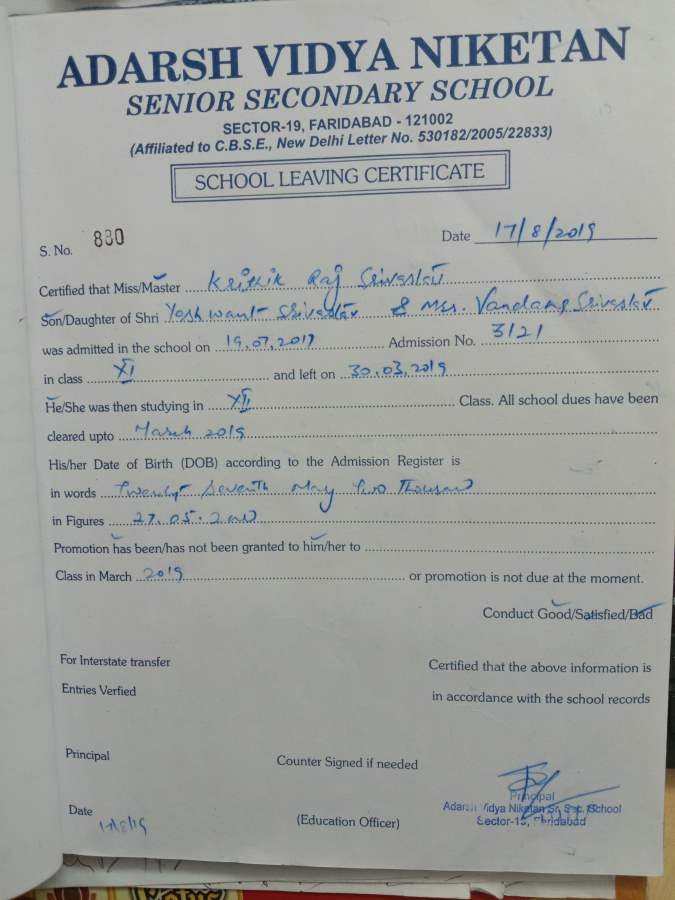 ADARSH VIDYA NIKETAN
SENIOR SECONDARY SCHOOL
SECTOR-19, FARIDABAD - 121002
(Affiliated to C.B.S.E., New Delhi Letter No. 530182/2005/22833)
SCHOOL LEAVING CERTIFICATE
S. No. 880 Date 17/8/2019
Certified that Miss/Master Krithik Raj Srivastav
Son/Daughter of Shri Yashwant Srivastav & Mrs. Vandana Srivastav
was admitted in the school on 19.07.2017 Admission No. 3121
in class XI and left on 30.03.2019
He/She was then studying in XII Class. All school dues have been
cleared upto March 2019
His/her Date of Birth (DOB) according to the Admission Register is
in words Twenty Seventh May Two Thousand
in Figures 27.05.2000
Promotion has been/has not been granted to him/her to
Class in March 2019 or promotion is not due at the moment.
Conduct Good/Satisfied/Bad
For Interstate transfer Certified that the above information is
Entries Verfied in accordance with the school records
Principal Counter Signed if needed
Principal
Adarsh Vidya Niketan Sr. Sec. School
Date (Education Officer) Faridabad